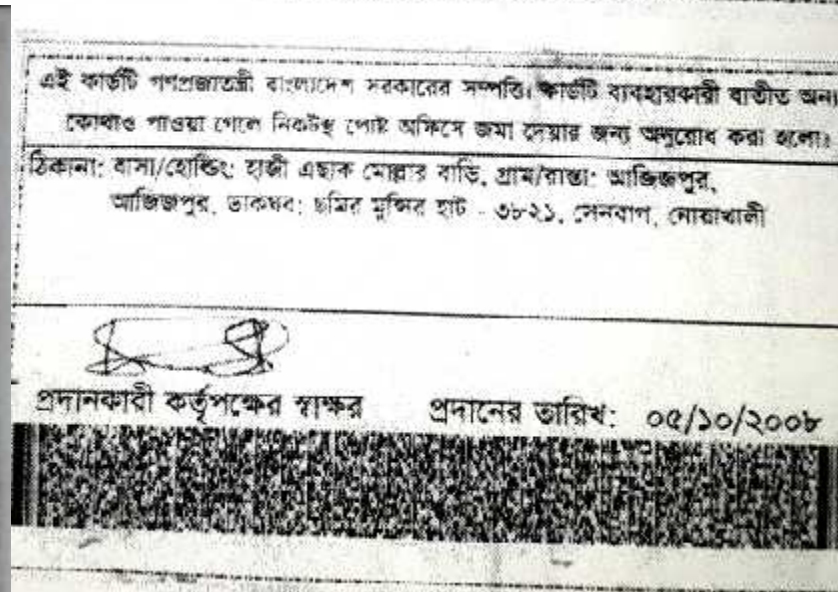 এই কার্ডটি গণপ্রজাতন্ত্রী বাংলাদেশ সরকারের সম্পত্তি। কার্ডটি ব্যবহারকারী ব্যতীত অন্য
কোথাও পাওয়া গেলে নিকটস্থ পোষ্ট অফিসে জমা দেয়ার জন্য অনুরোধ করা হলো।
ঠিকানা: বাসা/হোল্ডিং: হাজী এছাক মোল্লার বাড়ি, গ্রাম/রাস্তা: আজিজপুর,
আজিজপুর, ডাকঘর: ছমির মুন্সির হাট - ৩৮২১, সেনবাগ, নোয়াখালী
প্রদানকারী কর্তৃপক্ষের স্বাক্ষর প্রদানের তারিখ: ০৫/১০/২০০৮